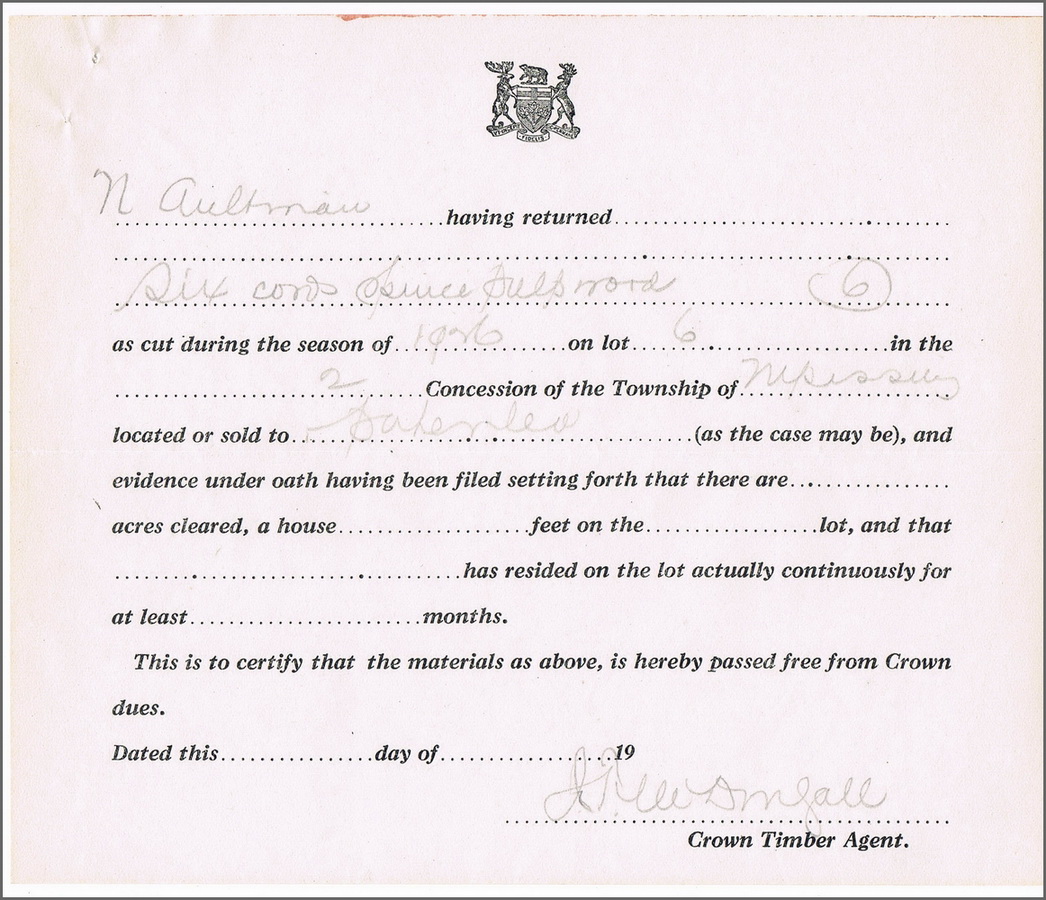 N Aultman having returned
Six cords Spruce Pulpwood 6
as cut during the season of 1926 on lot 6 in the
2 Concession of the Township of Nipissing
located or sold to (as the case may be), and
evidence under oath having been filed setting forth that there are
acres cleared, a house feet on the lot, and that
has resided on the lot actually continuously for
at least months.
This is to certify that the materials as above, is hereby passed free from Crown
dues.
Dated this day of 19
McDougall
Crown Timber Agent.